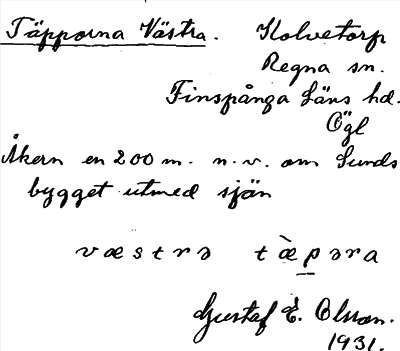 Täpporna Västra. Kolvetorp
Regna sn.
Finspånga Läns hd.
Ögl
Åkern en 200 m. n.v. om Sunds
bygget utmed sjön
væstrə tæ̀pəra
Gustaf E. Olsson.
1931.